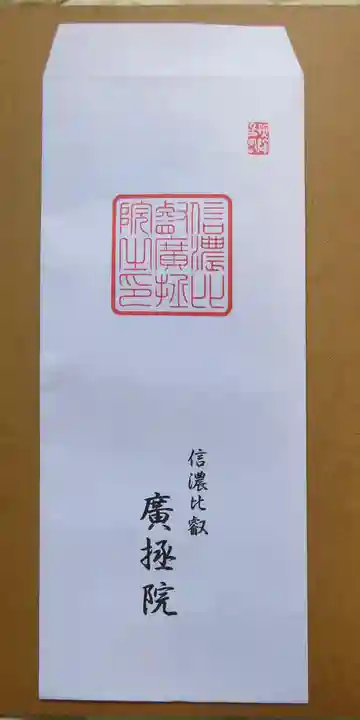 信濃比
叡廣拯
院之印
信濃比叡
廣拯院